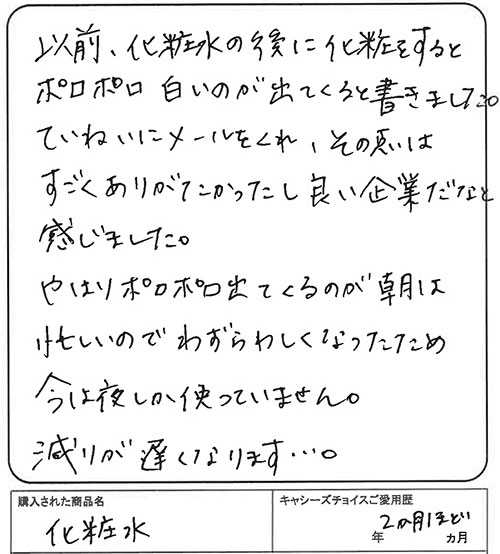 以前、化粧水の後に化粧をすると
ポロポロ白いのが出てくると書きました。
ていねいにメールをくれ、その点は
すごくありがたかったし良い企業だなと
感じました。
やはりポロポロ出てくるのが朝は
忙しいのでわずらわしくなったため
今は夜しか使っていません。
減りが遅くなります…。
購入された商品名
化粧水
キャシーズチョイスご愛用歴
2か月ほど
年 ヵ月